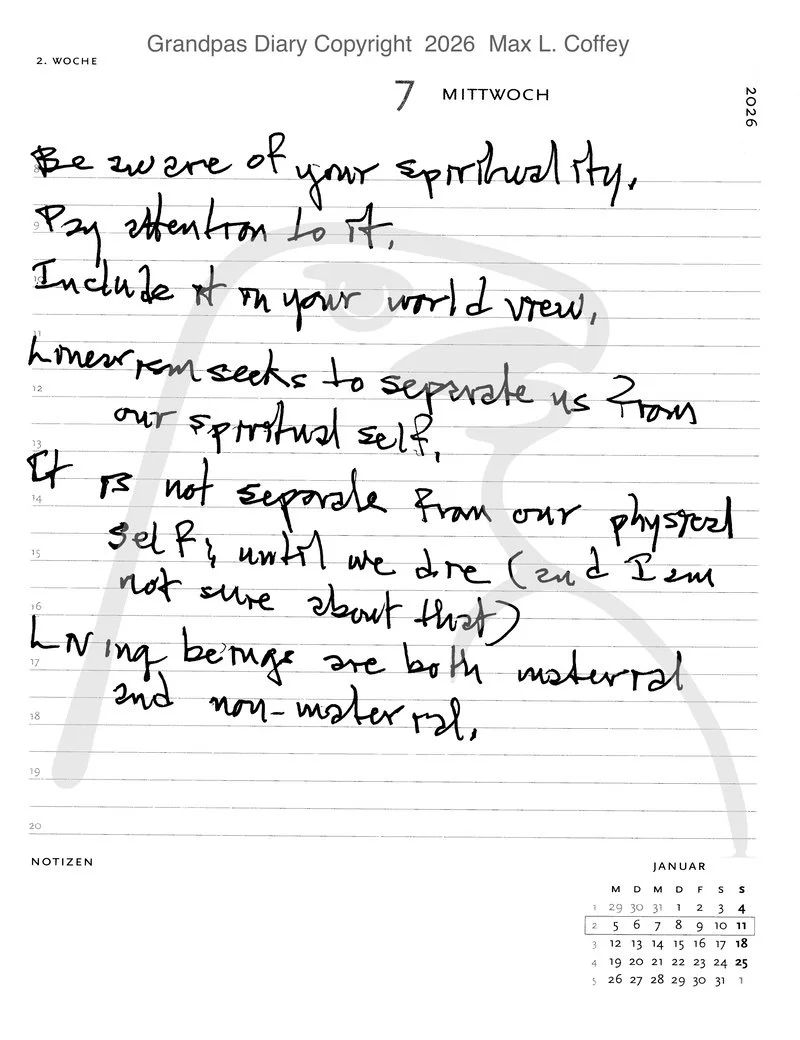 Grandpas Diary Copyright 2026 Max L. Coffey
2. WOCHE
7 MITTWOCH
2026
Be aware of your spirituality.
Pay attention to it.
Include it in your world view.
Linearism seeks to separate us from
our spiritual self.
It is not separate from our physical
self; until we die (and I am
not sure about that)
Living beings are both material
and non-material.
8
9
10
11
12
13
14
15
16
17
18
19
20
NOTIZEN
JANUAR
M D M D F S S
1 29 30 31 1 2 3 4
2 5 6 7 8 9 10 11
3 12 13 14 15 16 17 18
4 19 20 21 22 23 24 25
5 26 27 28 29 30 31 1